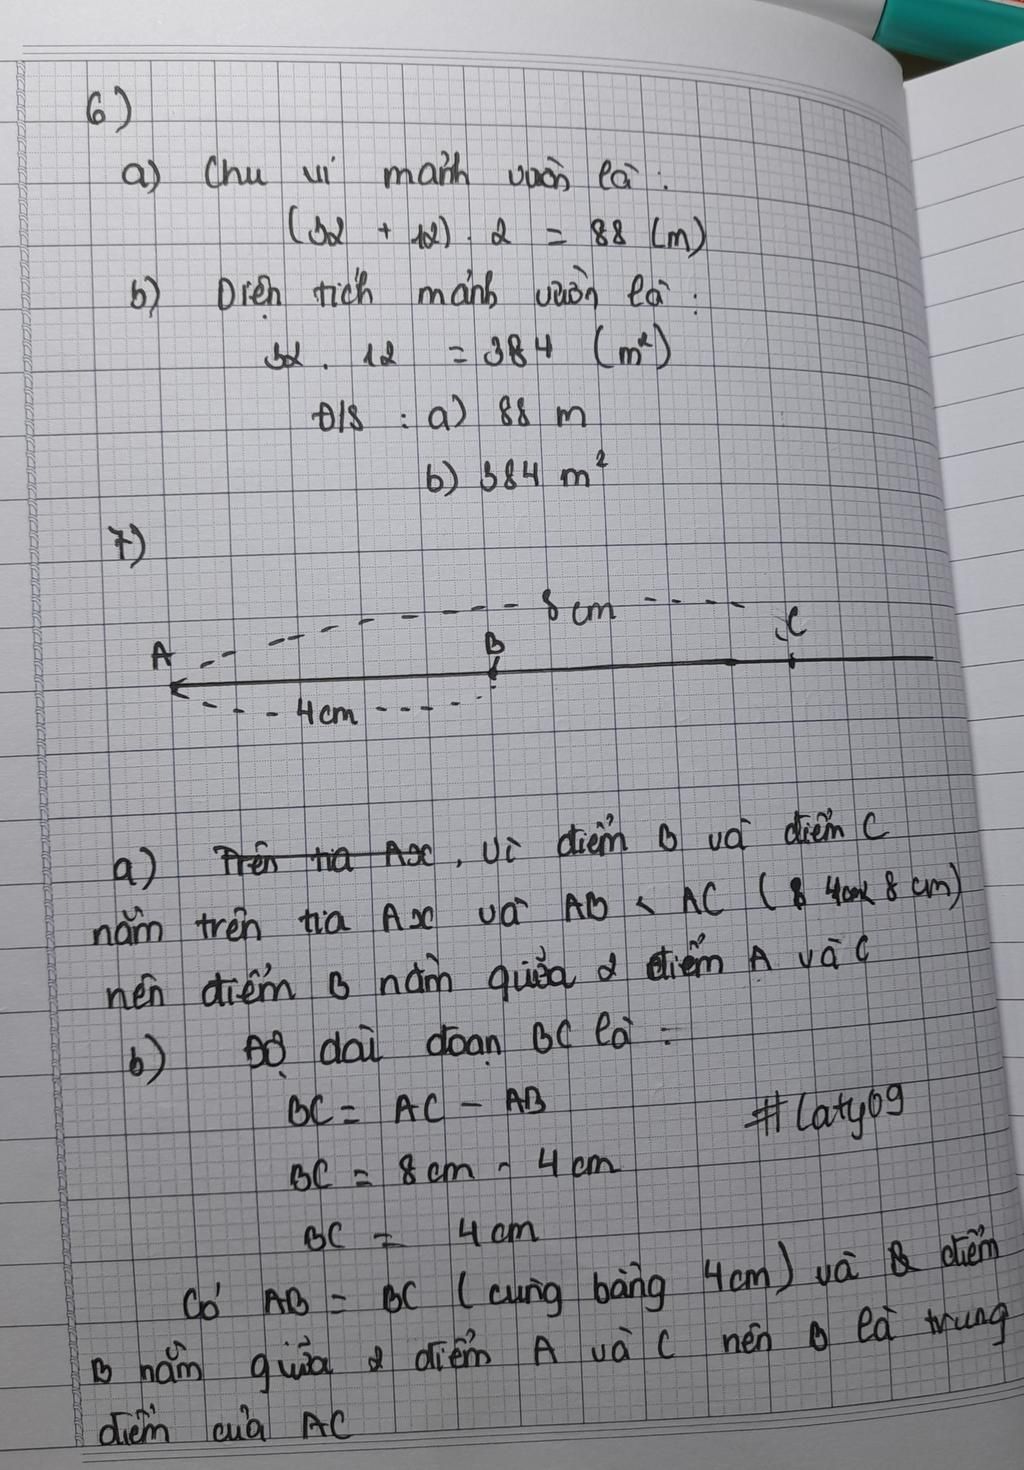 6)
a) Chu vi mảnh vườn là:
(32 + 12) . 2 = 88 (m)
b) Diện tích mảnh vườn là:
32 . 12 = 384 (m²)
Đ/S : a) 88 m
b) 384 m²
7)
8 cm
A B C
4cm
a) Trên tia Ax, vì điểm B và điểm C
nằm trên tia Ax và AB < AC ( 4cm < 8 cm)
nên điểm B nằm giữa 2 điểm A và C
b) Độ dài đoạn BC là :
BC = AC - AB
#Caty09
BC = 8 cm - 4 cm
BC = 4 cm
Có AB = BC (cùng bằng 4cm) và điểm
B nằm giữa 2 điểm A và C nên B là trung
điểm của AC